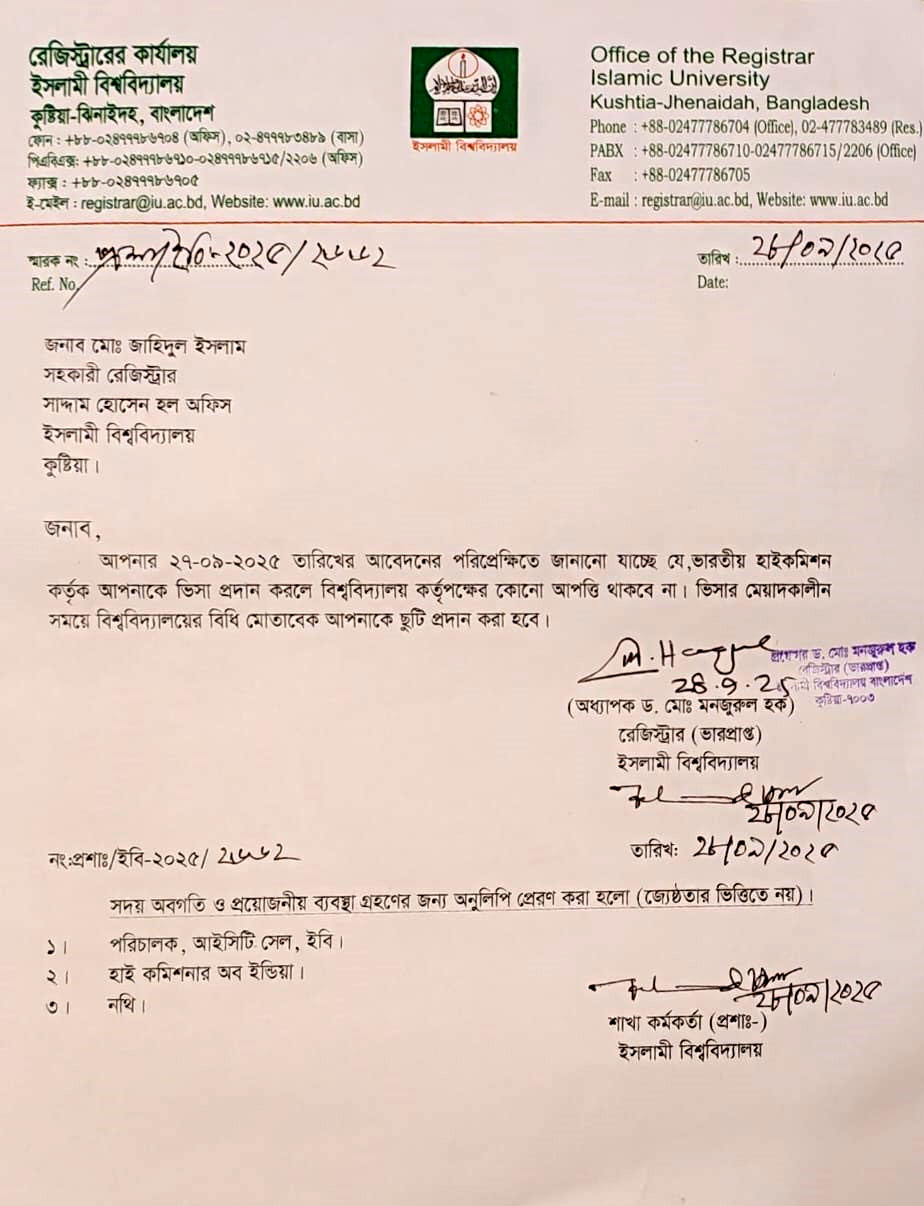 রেজিস্ট্রারের কার্যালয়
ইসলামী বিশ্ববিদ্যালয়
কুষ্টিয়া-ঝিনাইদহ, বাংলাদেশ
ফোন : +৮৮-০২৪৭৭৭৮৬৭০৪ (অফিস), ০২-৪৭৭৭৮৩৪৮৯ (বাসা)
পিএবিএক্স: +৮৮-০২৪৭৭৭৮৬৭১০-০২৪৭৭৭৮৬৭১৫/২২০৬ (অফিস)
ফ্যাক্স : +৮৮-০২৪৭৭৭৮৬৭০৫
ই-মেইল : registrar@iu.ac.bd, Website: www.iu.ac.bd
ইসলামী বিশ্ববিদ্যালয়
Office of the Registrar
Islamic University
Kushtia-Jhenaidah, Bangladesh
Phone : +88-02477786704 (Office), 02-477783489 (Res.)
PABX : +88-02477786710-02477786715/2206 (Office)
Fax : +88-02477786705
E-mail : registrar@iu.ac.bd, Website: www.iu.ac.bd
স্মারক নং :
Ref. No.
তারিখ : ২৮/০৯/২০২৫
Date:
জনাব মোঃ জাহিদুল ইসলাম
সহকারী রেজিস্ট্রার
সাদ্দাম হোসেন হল অফিস
ইসলামী বিশ্ববিদ্যালয়
কুষ্টিয়া।
জনাব,
আপনার ২৭-০৯-২০২৫ তারিখের আবেদনের পরিপ্রেক্ষিতে জানানো যাচ্ছে যে,ভারতীয় হাইকমিশন
কর্তৃক আপনাকে ভিসা প্রদান করলে বিশ্ববিদ্যালয় কর্তৃপক্ষের কোনো আপত্তি থাকবে না। ভিসার মেয়াদকালীন
সময়ে বিশ্ববিদ্যালয়ের বিধি মোতাবেক আপনাকে ছুটি প্রদান করা হবে।
28.9.25
প্রফেসর ড. মোঃ মনজুরুল হক
রেজিস্ট্রার (ভারপ্রাপ্ত)
ইসলামী বিশ্ববিদ্যালয় বাংলাদেশ
কুষ্টিয়া-৭০০৩
(অধ্যাপক ড. মোঃ মনজুরুল হক)
রেজিস্ট্রার (ভারপ্রাপ্ত)
ইসলামী বিশ্ববিদ্যালয়
২৮/০৯/২০২৫
নং:প্রশাঃ/ইবি-২০২৫/
তারিখঃ ২৮/০৯/২০২৫
সদয় অবগতি ও প্রয়োজনীয় ব্যবস্থা গ্রহণের জন্য অনুলিপি প্রেরণ করা হলো (জ্যেষ্ঠতার ভিত্তিতে নয়)।
১। পরিচালক, আইসিটি সেল, ইবি।
২। হাই কমিশনার অব ইন্ডিয়া।
৩। নথি।
২৮/০৯/২০২৫
শাখা কর্মকর্তা (প্রশাঃ-)
ইসলামী বিশ্ববিদ্যালয়